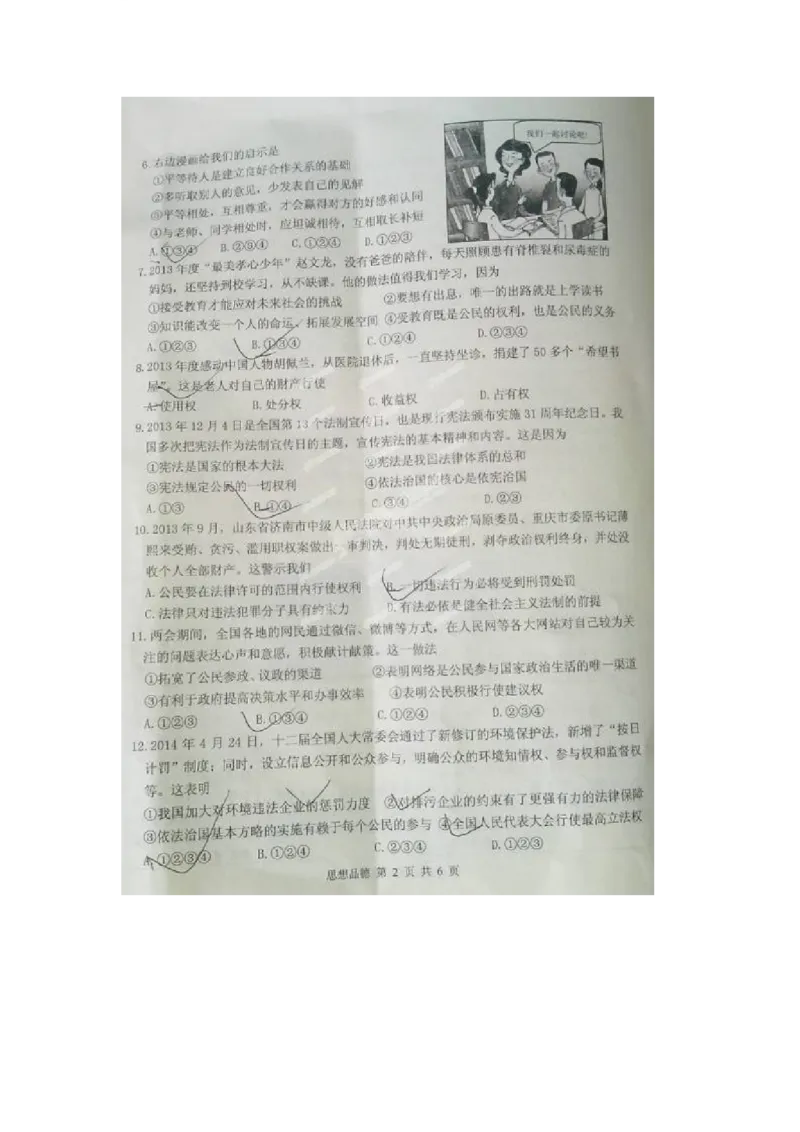 我们一起讨论吧!
6.右边漫画给我们的启示是
①平等待人是建立良好合作关系的基础
②多听取别人的意见，少发表自己的见解
③平等相处，互相尊重，才会赢得对方的好感和认同
④与老师、同学相处时，应坦诚相待，互相取长补短
A.①③④ B.②③④ C.①②④ D.①②③
7.2013年度“最美孝心少年”赵文龙，没有爸爸的陪伴，每天照顾患有脊椎裂和尿毒症的
妈妈，还坚持到校学习，从不缺课。他的做法值得我们学习，因为
①接受教育才能应对未来社会的挑战 ②要想有出息，唯一的出路就是上学读书
③知识能改变一个人的命运，拓展发展空间 ④受教育既是公民的权利，也是公民的义务
A.①②③ B.①③④ C.①②④ D.②③④
8.2013年度感动中国人物胡佩兰，从医院退休后，一直坚持坐诊，捐建了50多个“希望书
屋”。这是老人对自己的财产行使
A.使用权 B.处分权 C.收益权 D.占有权
9.2013年12月4日是全国第13个法制宣传日，也是现行宪法颁布实施31周年纪念日。我
国多次把宪法作为法制宣传日的主题，宣传宪法的基本精神和内容。这是因为
①宪法是国家的根本大法 ②宪法是我国法律体系的总和
③宪法规定公民的一切权利 ④依法治国的核心是依宪治国
A.①③ B.①④ C.③④ D.②③
10.2013年9月，山东省济南市中级人民法院对中共中央政治局原委员、重庆市委原书记薄
熙来受贿、贪污、滥用职权案做出一审判决，判处无期徒刑，剥夺政治权利终身，并处没
收个人全部财产。这警示我们
A.公民要在法律许可的范围内行使权利 B.一切违法行为必将受到刑罚处罚
C.法律只对违法犯罪分子具有约束力 D.有法必依是健全社会主义法制的前提
11.两会期间，全国各地的网民通过微信、微博等方式，在人民网等各大网站对自己较为关
注的问题表达心声和意愿，积极献计献策。这一做法
①拓宽了公民参政、议政的渠道 ②表明网络是公民参与国家政治生活的唯一渠道
③有利于政府提高决策水平和办事效率 ④表明公民积极行使建议权
A.①②③ B.①③④ C.①②④ D.②③④
12.2014年4月24日，十二届全国人大常委会通过了新修订的环境保护法，新增了“按日
计罚”制度；同时，设立信息公开和公众参与，明确公众的环境知情权、参与权和监督权
等。这表明
①我国加大对环境违法企业的惩罚力度 ②对排污企业的约束有了更强有力的法律保障
③依法治国基本方略的实施有赖于每个公民的参与 ④全国人民代表大会行使最高立法权
A.①②③④ B.①②④ C.②③④ D.①②③
思想品德 第 2 页 共 6 页